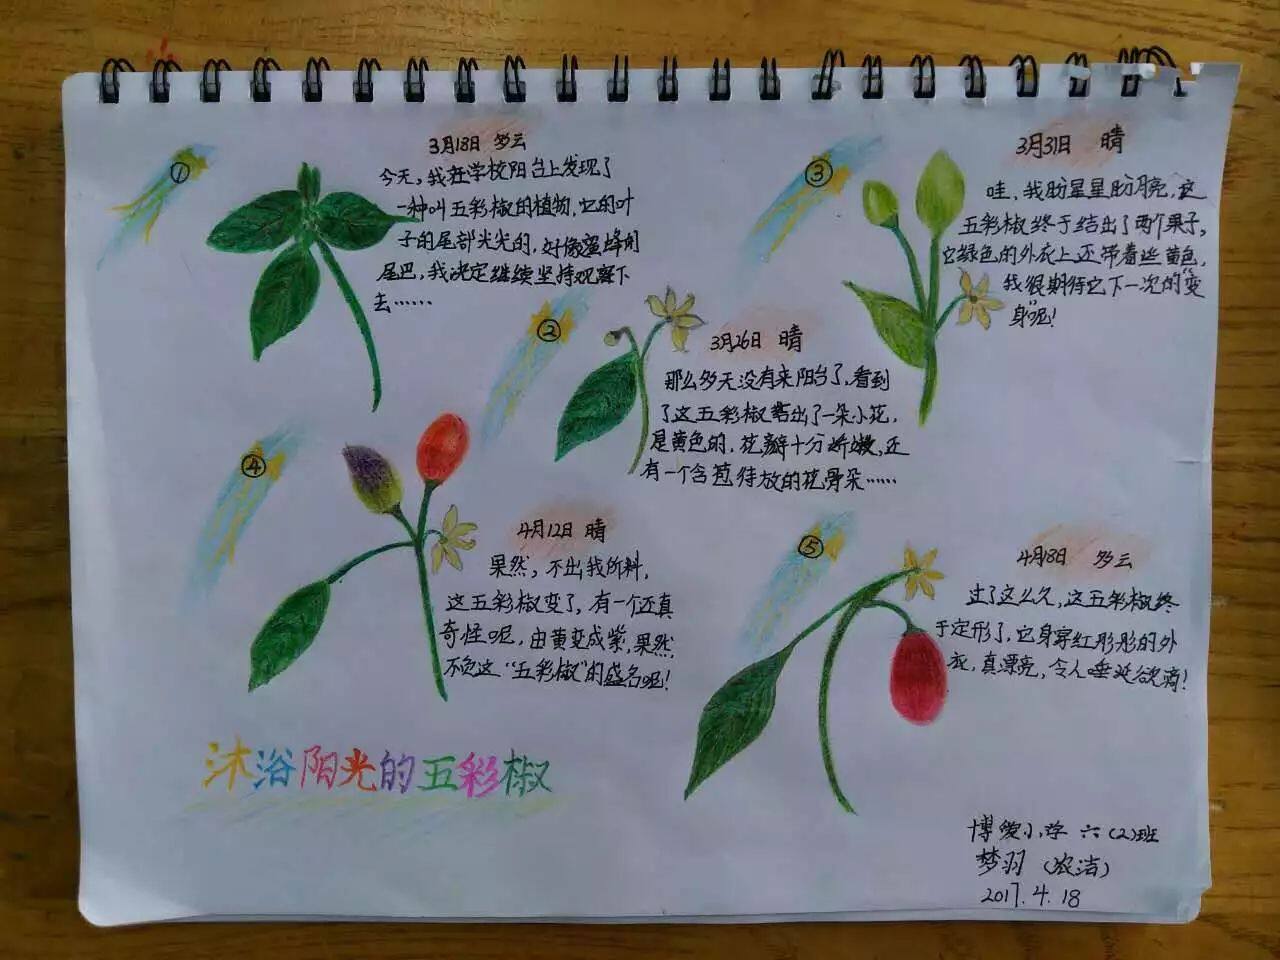 ①
3月18日 多云
今天,我在学校阳台上发现了
一种叫五彩椒的植物,它的叶
子的尾部光光的,好像蜜蜂的
尾巴,我决定继续坚持观察下
去……
②
3月26日 晴
那么多天没有来阳台了,看到
了这五彩椒结出了一朵小花,
是黄色的,花瓣十分娇嫩,还
有一个含苞待放的花骨朵……
③
3月31日 晴
哇,我盼星星盼月亮,这
五彩椒终于结出了两个果子,
它绿色的外衣上还带着些黄色,
我很期待它下一次的"变
身"呢!
④
4月12日 晴
果然,不出我所料,
这五彩椒变了,有一个还真
奇怪呢,由黄变成紫,果然
不负这"五彩椒"的盛名呢!
⑤
4月18日 多云
过了这么久,这五彩椒终
于定形了,它身穿红彤彤的外
衣,真漂亮,令人垂涎欲滴!
沐浴阳光的五彩椒
博爱小学 六(2)班
梦羽(农洁)
2017.4.18